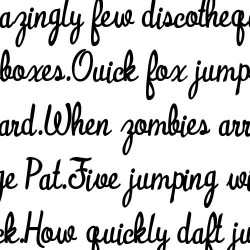 azingly few discotheque
boxes.Quick fox jump
ard.When zombies arr
ge Pat.Five jumping wi
ck.How quickly daft ju